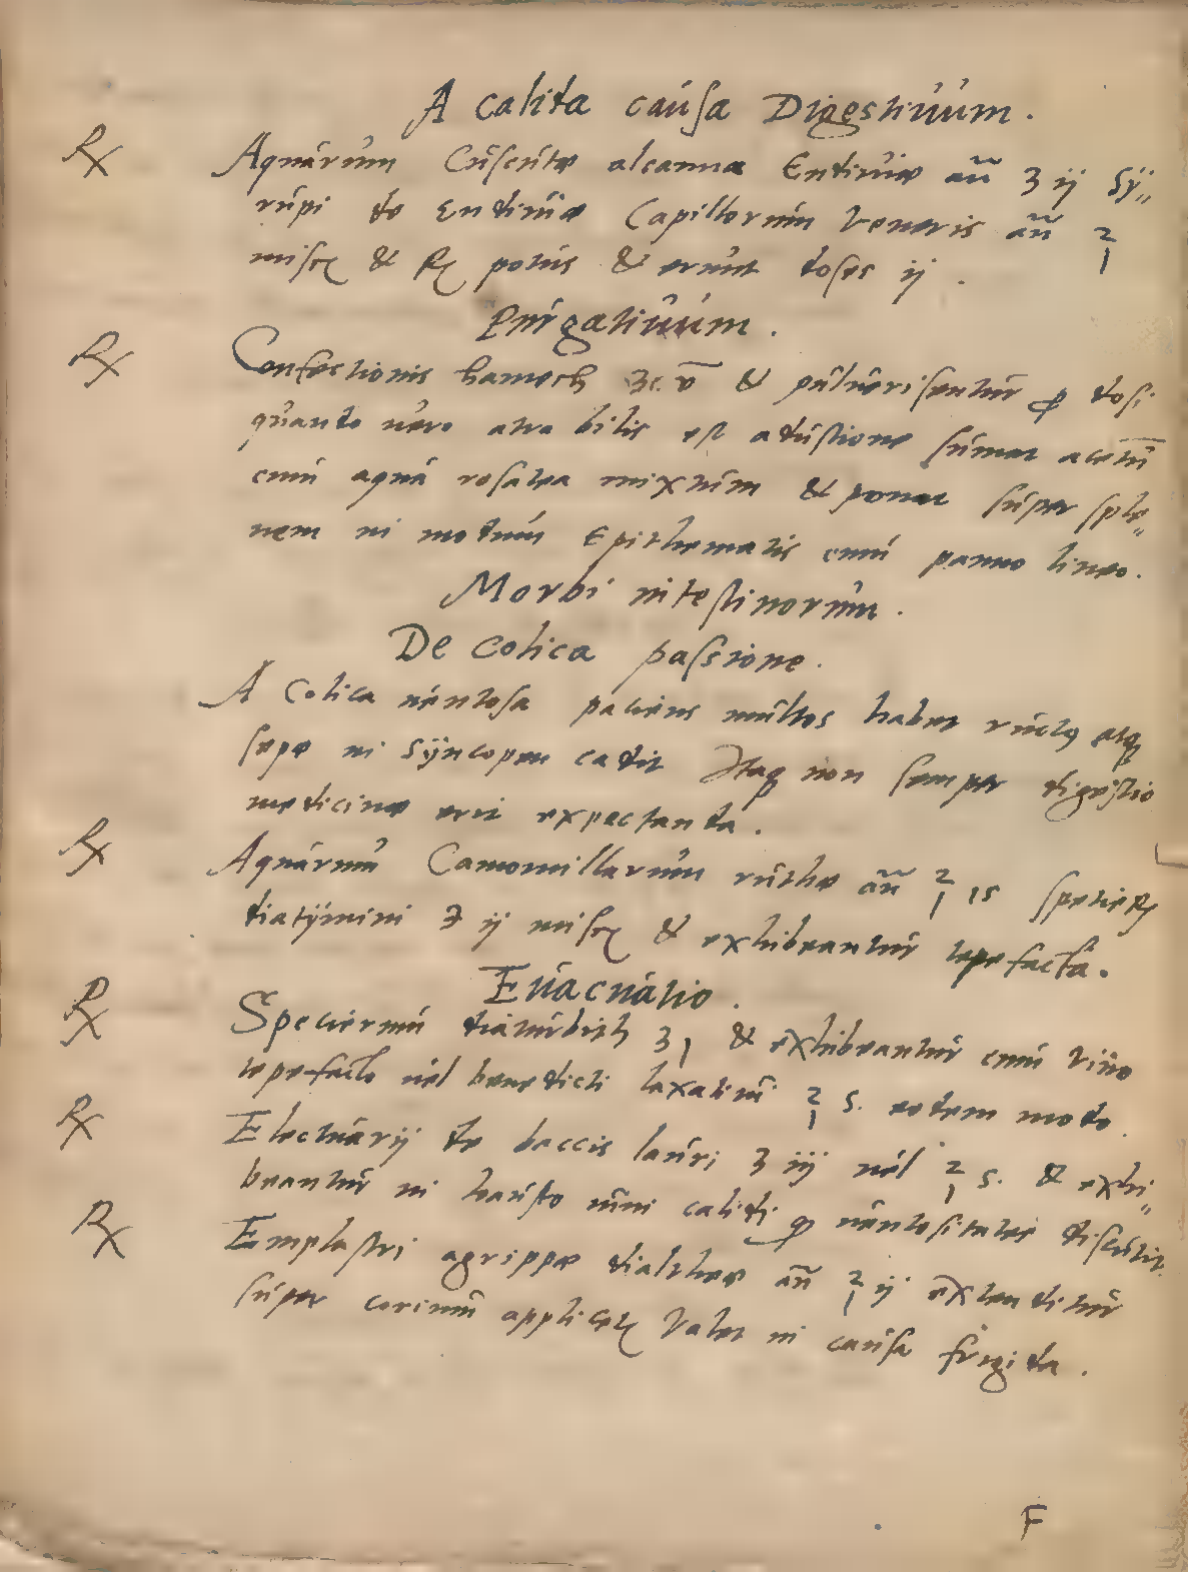 A calida caúsa Digestiúúm.
℞ Aquárúm Cúscútæ alcannæ Endiuiæ añ ʒ ij Sÿ„
rúpi de Endiuiæ Capillorúm Veneris añ ℥ j
misce & ℞ potús & erúnt doses ij.
Púrgatiúúm.
℞ Confectionis hamech & púlúerisentúr ꝓ dosi
quando úero atra bilis est adústione súmat acetū
cúm aquá rosatea mixtúm & ponat súper sple„
nem in modúm Epithematis cúm panno lineo.
Morbi intestinorúm.
De Colica passione.
A Colica uéntosa patiens múltos habet rúctꝰ atqꝫ
sepe in Sÿncopen cadit Itaqꝫ non semper digestio
medicinæ erit expectanda.
℞ Aquárúm Camomillarúm rúthæ añ ℥ j speties
diatÿmini ij misce & exhibeantúr tepefacta.
Eúacúátio.
℞ Specierúm diatúrbith ʒ j & exhibeantúr cúm Vino
tepefacto úel benedicti laxatiui ℥ j s. eodem modo.
℞ Electúárij de baccis laúri ʒ iij úel ℥ j s. & exhi„
beantúr in haústo úini calidi uéntositates discútit.
℞ Emplastri agrippæ dialtheæ añ ℥ j ij extenditúr
súper coriúm applicetur Valet in caúsa frigida.
F